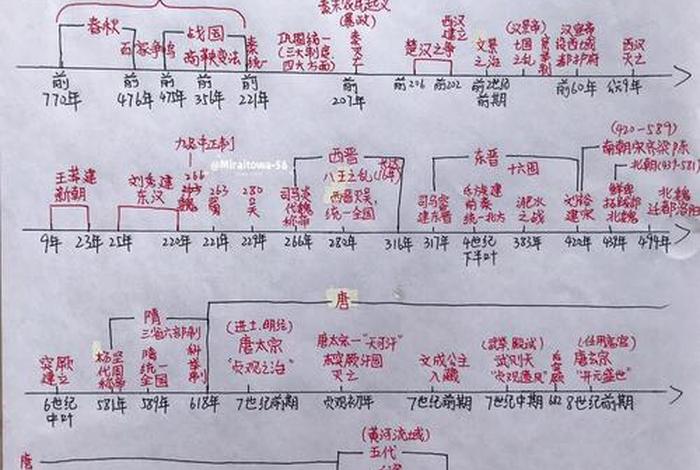 春秋
战国
百家争鸣
商鞅变法
秦统一
巩固统一
(三大制度
四大方面)
秦末农民起义
(暴政)
秦亡
楚汉之争
西汉建立
文景之治
(汉景帝)
七国之乱
汉宣帝
设西域
都护府
西汉
灭亡
前770年
前476年
前475年
前356年
前221年
前207年
前206
前202
前2世纪前期
前60年
公9年
九品中正制
@Miraitowa-56
王莽建
新朝
刘秀建
东汉
266
魏
263
蜀
280
吴
司马炎
代魏
称帝
西晋
八王之乱(16年)
西晋灭吴,
统一全国
东晋
十六国
司马睿
建东晋
氐族建
前秦
统一北方
淝水
之战
刘裕
建宋
(420-589)
南朝宋齐梁陈
北朝(439-581)
鲜卑
拓跋部
北魏
北魏
迁都洛阳
9年
23年
25年
220年
221年
229年
266年
280年
316年
317年
4世纪
下半叶
383年
420年
439年
494年
唐
隋
三省六部制
突厥
建立
杨坚
代周
称帝
隋
统一
全国
科举制
(进士、明经)
唐太宗
"贞观之治"
唐太宗-"天可汗"
东突厥汗国
灭亡
文成公主
入藏
(武举 殿试)
武则天
"贞观遗风"
后突厥
(任用宦官)
唐玄宗
"开元盛世"
6世纪
中叶
581年
589年
618年
7世纪前期
贞观初年
7世纪前期
7世纪中期
682
8世纪前期
唐
(黄河流域)
五代